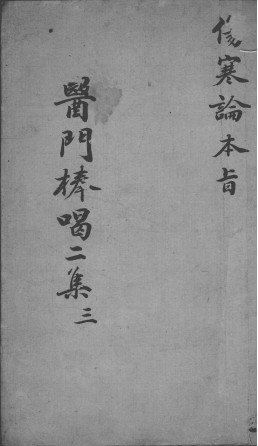 傷寒論本旨
醫門棒喝二集三